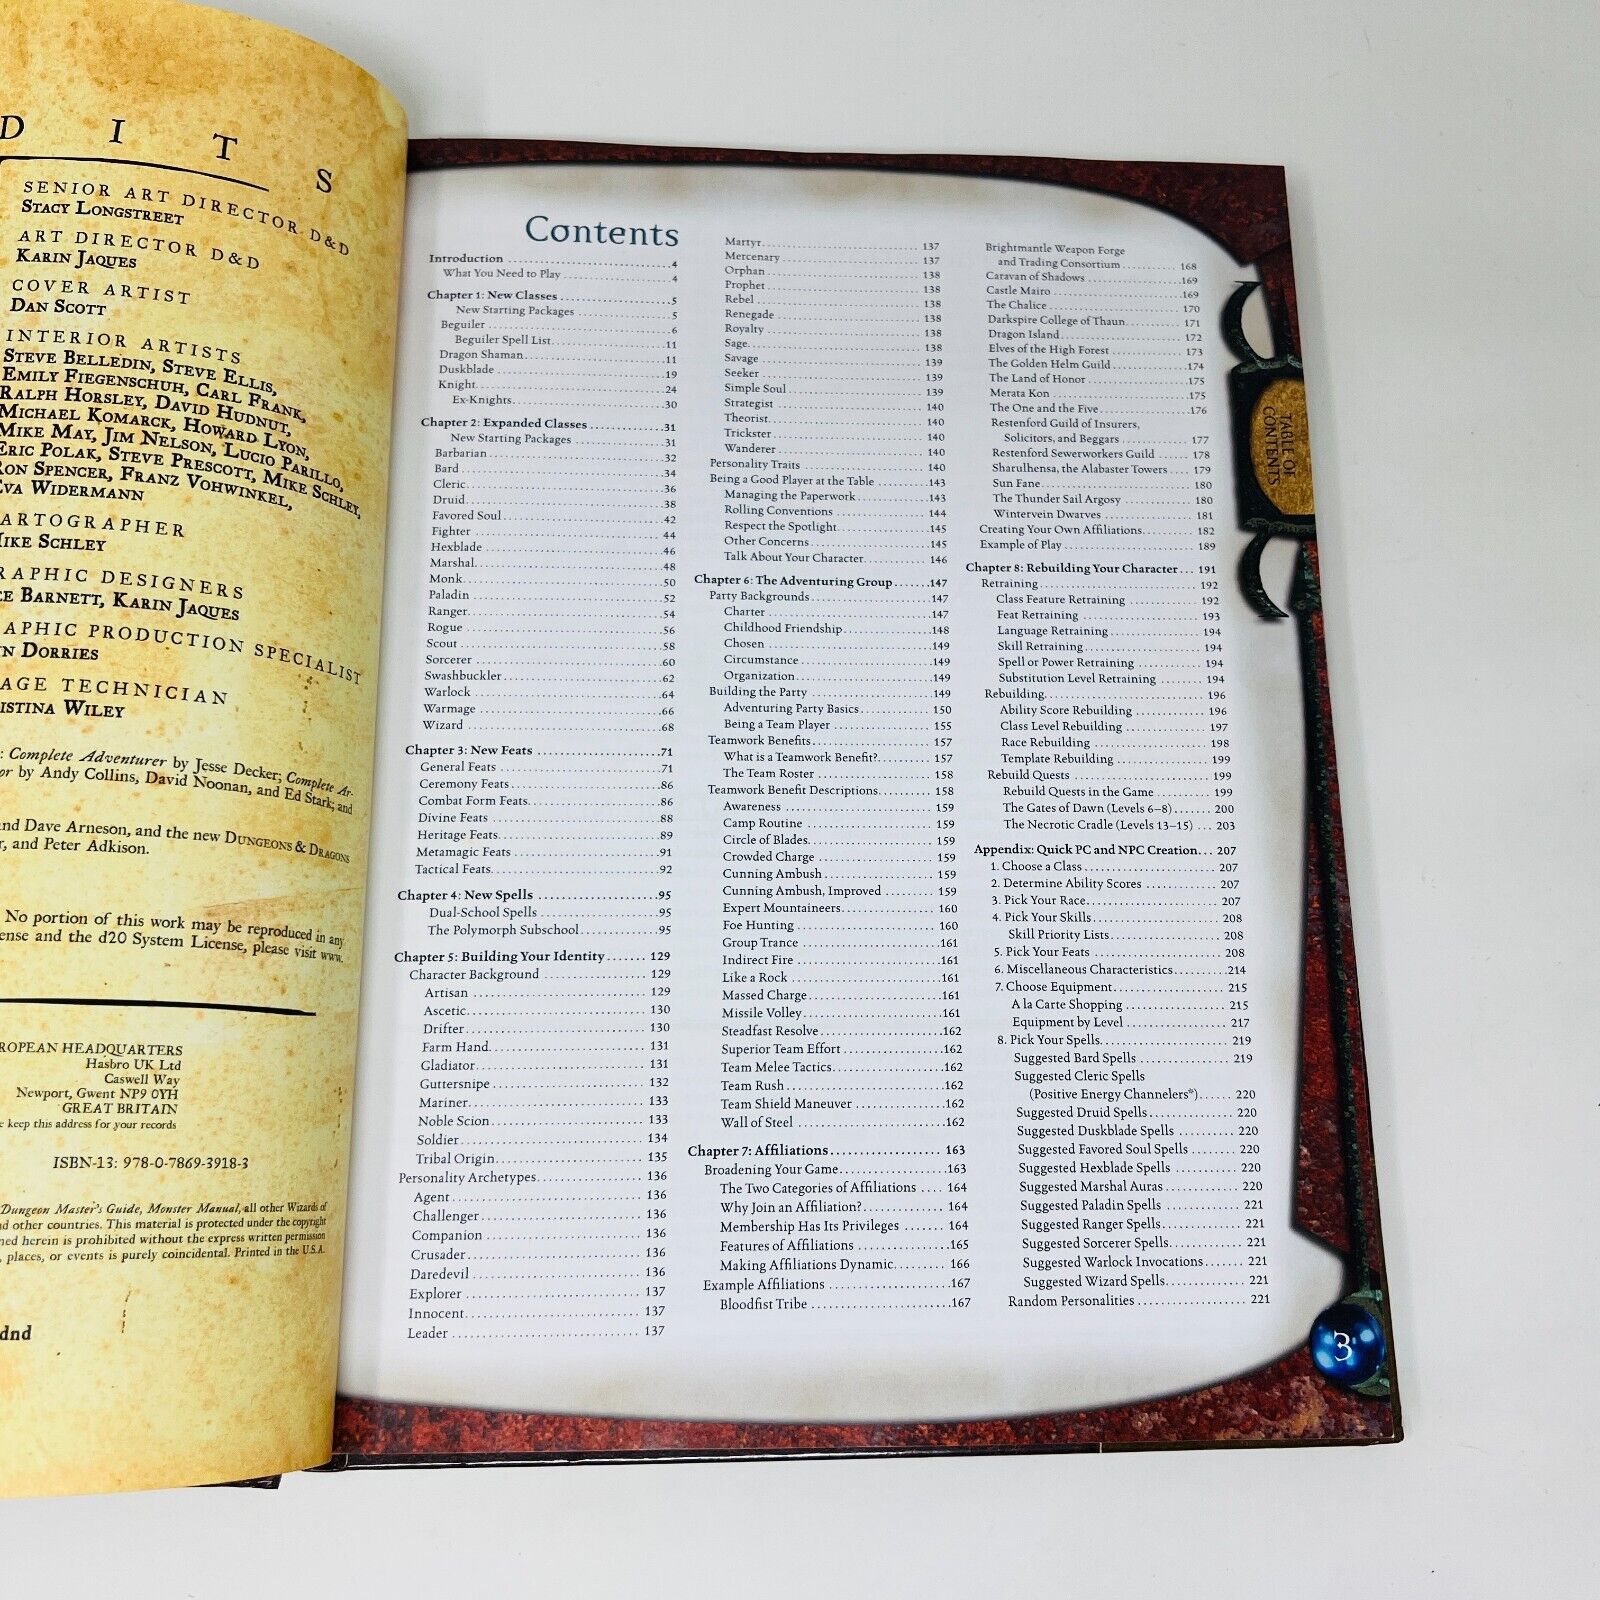 D I T S
SENIOR ART DIRECTOR D&D
STACY LONGSTREET
ART DIRECTOR D&D
KARIN JAQUES
COVER ARTIST
DAN SCOTT
INTERIOR ARTISTS
STEVE BELLEDIN, STEVE ELLIS,
EMILY FIEGENSCHUH, CARL FRANK,
RALPH HORSLEY, DAVID HUDNUT,
MICHAEL KOMARCK, HOWARD LYON,
MIKE MAY, JIM NELSON, LUCIO PARILLO,
ERIC POLAK, STEVE PRESCOTT, MIKE SCHLEY,
RON SPENCER, FRANZ VOHWINKEL,
EVA WIDERMANN
ARTOGRAPHER
MIKE SCHLEY
RAPHIC DESIGNERS
CE BARNETT, KARIN JAQUES
APHIC PRODUCTION SPECIALIST
N DORRIES
AGE TECHNICIAN
ISTINA WILEY
: Complete Adventurer by Jesse Decker; Complete Ar-
or by Andy Collins, David Noonan, and Ed Stark; and
nd Dave Arneson, and the new DUNGEONS & DRAGONS
r, and Peter Adkison.
No portion of this work may be reproduced in any
ense and the d20 System License, please visit www.
ROPEAN HEADQUARTERS
Hasbro UK Ltd
Caswell Way
Newport, Gwent NP9 0YH
GREAT BRITAIN
e keep this address for your records
ISBN-13: 978-0-7869-3918-3
Dungeon Master's Guide, Monster Manual, all other Wizards of
nd other countries. This material is protected under the copyright
ned herein is prohibited without the express written permission
, places, or events is purely coincidental. Printed in the U.S.A.
dnd
Contents
Introduction ........ 4
What You Need to Play ........ 4
Chapter 1: New Classes ........ 5
New Starting Packages ........ 5
Beguiler ........ 6
Beguiler Spell List ........ 11
Dragon Shaman ........ 11
Duskblade ........ 19
Knight ........ 24
Ex-Knights ........ 30
Chapter 2: Expanded Classes ........ 31
New Starting Packages ........ 31
Barbarian ........ 32
Bard ........ 34
Cleric ........ 36
Druid ........ 38
Favored Soul ........ 42
Fighter ........ 44
Hexblade ........ 46
Marshal ........ 48
Monk ........ 50
Paladin ........ 52
Ranger ........ 54
Rogue ........ 56
Scout ........ 58
Sorcerer ........ 60
Swashbuckler ........ 62
Warlock ........ 64
Warmage ........ 66
Wizard ........ 68
Chapter 3: New Feats ........ 71
General Feats ........ 71
Ceremony Feats ........ 86
Combat Form Feats ........ 86
Divine Feats ........ 88
Heritage Feats ........ 89
Metamagic Feats ........ 91
Tactical Feats ........ 92
Chapter 4: New Spells ........ 95
Dual-School Spells ........ 95
The Polymorph Subschool ........ 95
Chapter 5: Building Your Identity ........ 129
Character Background ........ 129
Artisan ........ 129
Ascetic ........ 130
Drifter ........ 130
Farm Hand ........ 131
Gladiator ........ 131
Guttersnipe ........ 132
Mariner ........ 133
Noble Scion ........ 133
Soldier ........ 134
Tribal Origin ........ 135
Personality Archetypes ........ 136
Agent ........ 136
Challenger ........ 136
Companion ........ 136
Crusader ........ 136
Daredevil ........ 136
Explorer ........ 137
Innocent ........ 137
Leader ........ 137
Martyr ........ 137
Mercenary ........ 137
Orphan ........ 138
Prophet ........ 138
Rebel ........ 138
Renegade ........ 138
Royalty ........ 138
Sage ........ 138
Savage ........ 139
Seeker ........ 139
Simple Soul ........ 139
Strategist ........ 140
Theorist ........ 140
Trickster ........ 140
Wanderer ........ 140
Personality Traits ........ 140
Being a Good Player at the Table ........ 143
Managing the Paperwork ........ 143
Rolling Conventions ........ 144
Respect the Spotlight ........ 145
Other Concerns ........ 145
Talk About Your Character ........ 146
Chapter 6: The Adventuring Group ........ 147
Party Backgrounds ........ 147
Charter ........ 147
Childhood Friendship ........ 148
Chosen ........ 149
Circumstance ........ 149
Organization ........ 149
Building the Party ........ 149
Adventuring Party Basics ........ 150
Being a Team Player ........ 155
Teamwork Benefits ........ 157
What is a Teamwork Benefit? ........ 157
The Team Roster ........ 158
Teamwork Benefit Descriptions ........ 158
Awareness ........ 159
Camp Routine ........ 159
Circle of Blades ........ 159
Crowded Charge ........ 159
Cunning Ambush ........ 159
Cunning Ambush, Improved ........ 159
Expert Mountaineers ........ 160
Foe Hunting ........ 160
Group Trance ........ 161
Indirect Fire ........ 161
Like a Rock ........ 161
Massed Charge ........ 161
Missile Volley ........ 161
Steadfast Resolve ........ 162
Superior Team Effort ........ 162
Team Melee Tactics ........ 162
Team Rush ........ 162
Team Shield Maneuver ........ 162
Wall of Steel ........ 162
Chapter 7: Affiliations ........ 163
Broadening Your Game ........ 163
The Two Categories of Affiliations .... 164
Why Join an Affiliation? ........ 164
Membership Has Its Privileges ........ 164
Features of Affiliations ........ 165
Making Affiliations Dynamic ........ 166
Example Affiliations ........ 167
Bloodfist Tribe ........ 167
Brightmantle Weapon Forge
and Trading Consortium ........ 168
Caravan of Shadows ........ 169
Castle Mairo ........ 169
The Chalice ........ 170
Darkspire College of Thaun ........ 171
Dragon Island ........ 172
Elves of the High Forest ........ 173
The Golden Helm Guild ........ 174
The Land of Honor ........ 175
Merata Kon ........ 175
The One and the Five ........ 176
Restenford Guild of Insurers,
Solicitors, and Beggars ........ 177
Restenford Sewerworkers Guild ........ 178
Sharulhensa, the Alabaster Towers .... 179
Sun Fane ........ 180
The Thunder Sail Argosy ........ 180
Wintervein Dwarves ........ 181
Creating Your Own Affiliations ........ 182
Example of Play ........ 189
Chapter 8: Rebuilding Your Character ... 191
Retraining ........ 192
Class Feature Retraining ........ 192
Feat Retraining ........ 193
Language Retraining ........ 194
Skill Retraining ........ 194
Spell or Power Retraining ........ 194
Substitution Level Retraining ........ 194
Rebuilding ........ 196
Ability Score Rebuilding ........ 196
Class Level Rebuilding ........ 197
Race Rebuilding ........ 198
Template Rebuilding ........ 199
Rebuild Quests ........ 199
Rebuild Quests in the Game ........ 199
The Gates of Dawn (Levels 6–8) ........ 200
The Necrotic Cradle (Levels 13–15) ... 203
Appendix: Quick PC and NPC Creation ... 207
1. Choose a Class ........ 207
2. Determine Ability Scores ........ 207
3. Pick Your Race ........ 207
4. Pick Your Skills ........ 208
Skill Priority Lists ........ 208
5. Pick Your Feats ........ 208
6. Miscellaneous Characteristics ........ 214
7. Choose Equipment ........ 215
A la Carte Shopping ........ 215
Equipment by Level ........ 217
8. Pick Your Spells ........ 219
Suggested Bard Spells ........ 219
Suggested Cleric Spells
(Positive Energy Channelers*) ........ 220
Suggested Druid Spells ........ 220
Suggested Duskblade Spells ........ 220
Suggested Favored Soul Spells ........ 220
Suggested Hexblade Spells ........ 220
Suggested Marshal Auras ........ 220
Suggested Paladin Spells ........ 221
Suggested Ranger Spells ........ 221
Suggested Sorcerer Spells ........ 221
Suggested Warlock Invocations ........ 221
Suggested Wizard Spells ........ 221
Random Personalities ........ 221
TABLE OF
CONTENTS
3